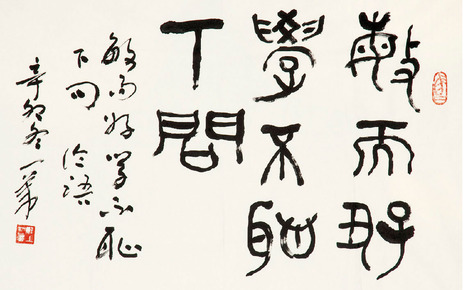 敏而好
學不恥
下問
敏而好學不恥
下問 論語
辛卯冬一